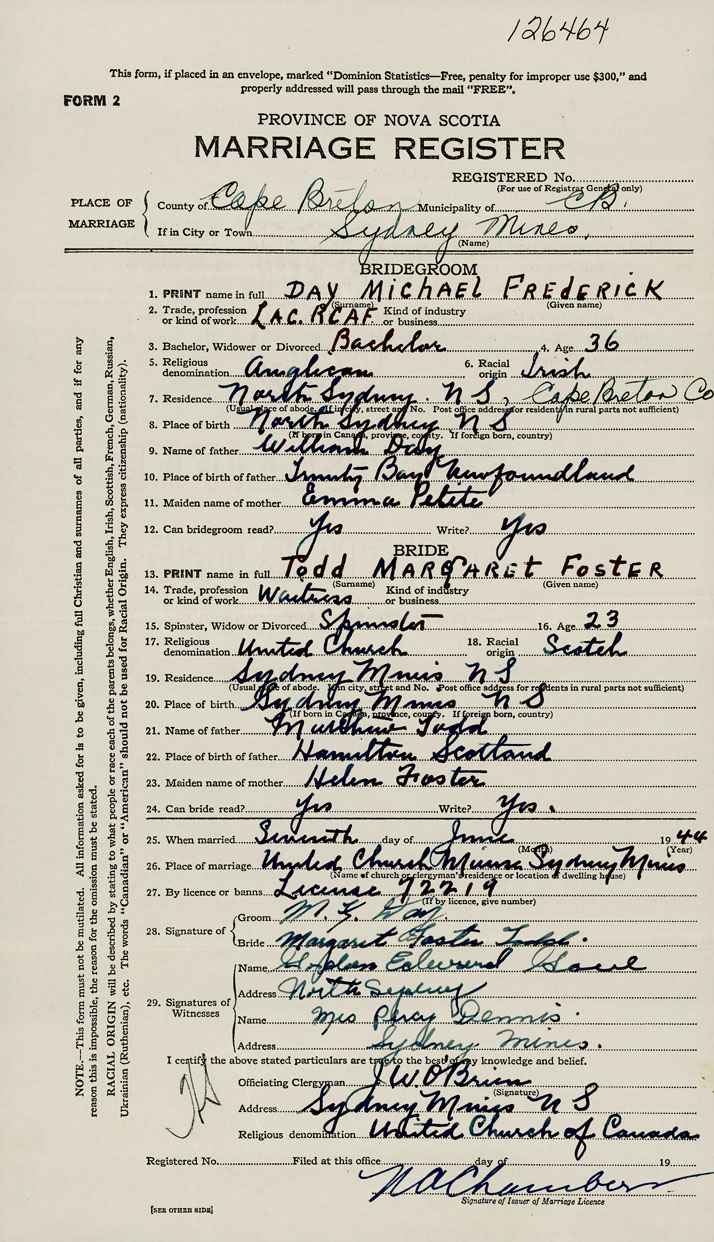 126464
This form, if placed in an envelope, marked “Dominion Statistics—Free, penalty for improper use $300,” and
properly addressed will pass through the mail “FREE”.
FORM 2
PROVINCE OF NOVA SCOTIA
MARRIAGE REGISTER
REGISTERED No.
(For use of Registrar General only)
PLACE OF MARRIAGE
County of Cape Breton Municipality of C B.
If in City or Town Sydney Mines.
(Name)
BRIDEGROOM
1. PRINT name in full DAY MICHAEL FREDERICK
(Surname) (Given name)
2. Trade, profession or kind of work L.A.C. RCAF Kind of industry or business
3. Bachelor, Widower or Divorced Bachelor 4. Age 36
5. Religious denomination Anglican 6. Racial origin Irish
7. Residence North Sydney. N S, Cape Breton Co
(Usual place of abode. If in city, street and No. Post office address for residents in rural parts not sufficient)
8. Place of birth North Sydney N S
(If born in Canada, province, county. If foreign born, country)
9. Name of father William Day
10. Place of birth of father Trinity Bay Newfoundland
11. Maiden name of mother Emma Petite
12. Can bridegroom read? Yes Write? Yes
BRIDE
13. PRINT name in full TODD MARGARET FOSTER
(Surname) (Given name)
14. Trade, profession or kind of work Waitress Kind of industry or business
15. Spinster, Widow or Divorced Spinster 16. Age 23
17. Religious denomination United Church 18. Racial origin Scotch
19. Residence Sydney Mines N S
(Usual place of abode. If in city, street and No. Post office address for residents in rural parts not sufficient)
20. Place of birth Sydney Mines N S
(If born in Canada, province, county. If foreign born, country)
21. Name of father Matthew Todd
22. Place of birth of father Hamilton Scotland
23. Maiden name of mother Helen Foster
24. Can bride read? Yes Write? Yes.
25. When married Seventh day of June 1944
(Month) (Year)
26. Place of marriage United Church Manse Sydney Mines
(Name of church or clergyman's residence or location of dwelling house)
27. By licence or banns License 72219
(If by licence, give number)
28. Signature of Groom M. F. Day.
Bride Margaret Foster Todd.
29. Signatures of Witnesses Name Edward
Address North Sydney
Name Mrs Percy Dennis.
Address Sydney Mines.
I certify the above stated particulars are true to the best of my knowledge and belief.
Officiating Clergyman J W O'Brien
(Signature)
Address Sydney Mines N S
Religious denomination United Church of Canada
Registered No. Filed at this office day of 19
Chambers
Signature of Issuer of Marriage Licence
[SEE OTHER SIDE]
NOTE.—This form must not be mutilated. All information asked for is to be given, including full Christian and surnames of all parties, and if for any
reason this is impossible, the reason for the omission must be stated.
RACIAL ORIGIN will be described by stating to what people or race each of the parents belongs, whether English, Irish, Scottish, French, German, Russian,
Ukrainian (Ruthenian), etc. The words “Canadian” or “American” should not be used for Racial Origin. They express citizenship (nationality).